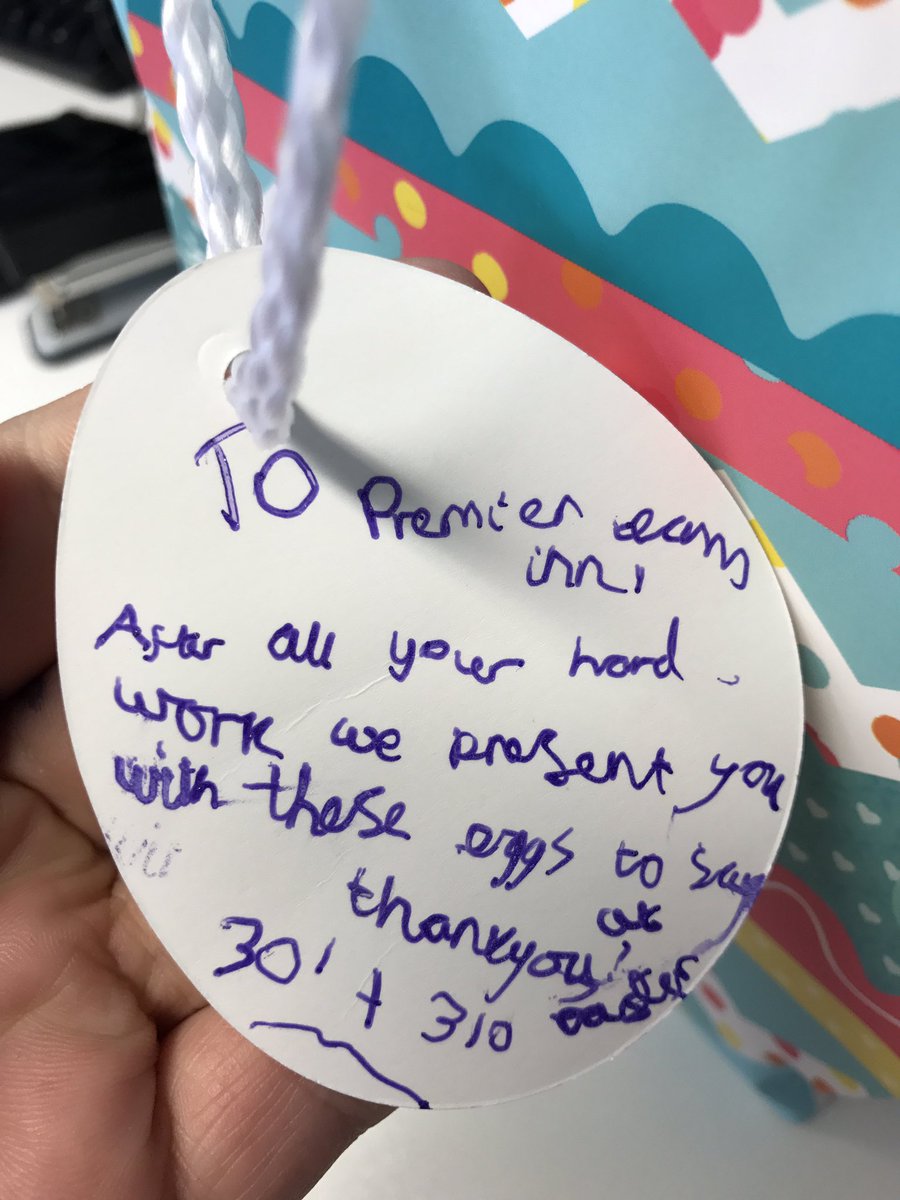 TO Premier team
inn,
After all your hard
work we present you
with these eggs to say
thankyou! at
301 + 310 easter